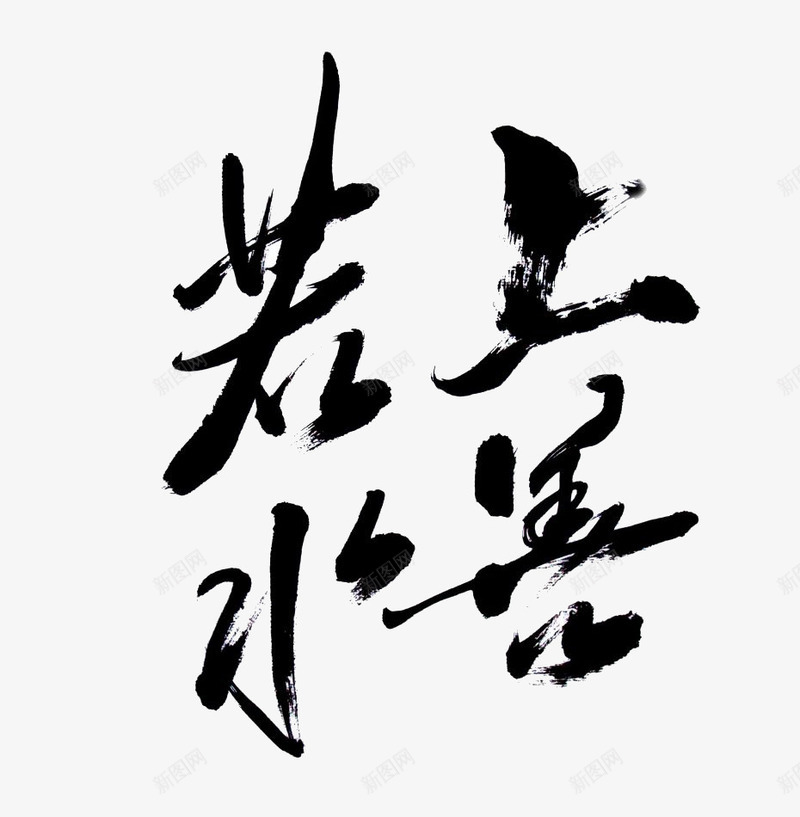 上善
若水
新图网